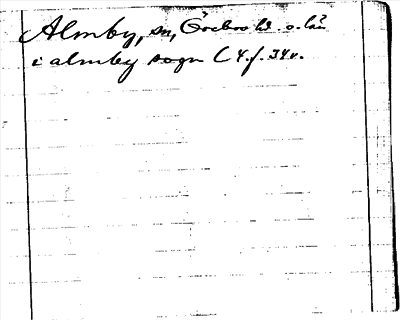 Almby, sn, Örebro hd o. län
i almby sogn C 4. f. 34v.